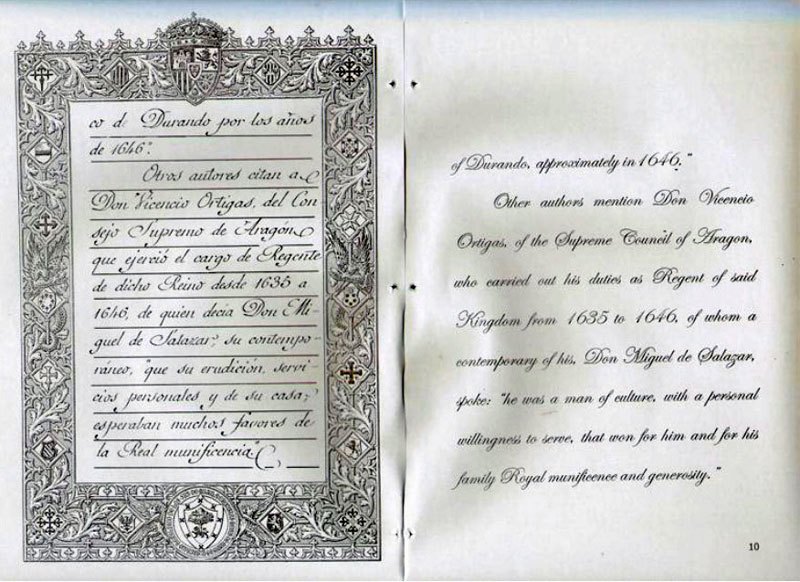 co d. Durando por los años
de 1646".
Otros autores citan a
Don Vicencio Ortigas, del Con
sejo Supremo de Aragón,
que ejerció el cargo de Regente
de dicho Reino desde 1635 a
1646, de quien decía Don Mi-
guel de Salazar, su contempo-
ráneo, "que su erudición, servi-
cios personales y de su casa,
esperaban muchos favores de
la Real munificencia".
of Durando, approximately in 1646."
Other authors mention Don Vicencio
Ortigas, of the Supreme Council of Aragon,
who carried out his duties as Regent of said
Kingdom from 1635 to 1646, of whom a
contemporary of his, Don Miguel de Salazar,
spoke: "he was a man of culture, with a personal
willingness to serve, that won for him and for his
family Royal munificence and generosity."
10